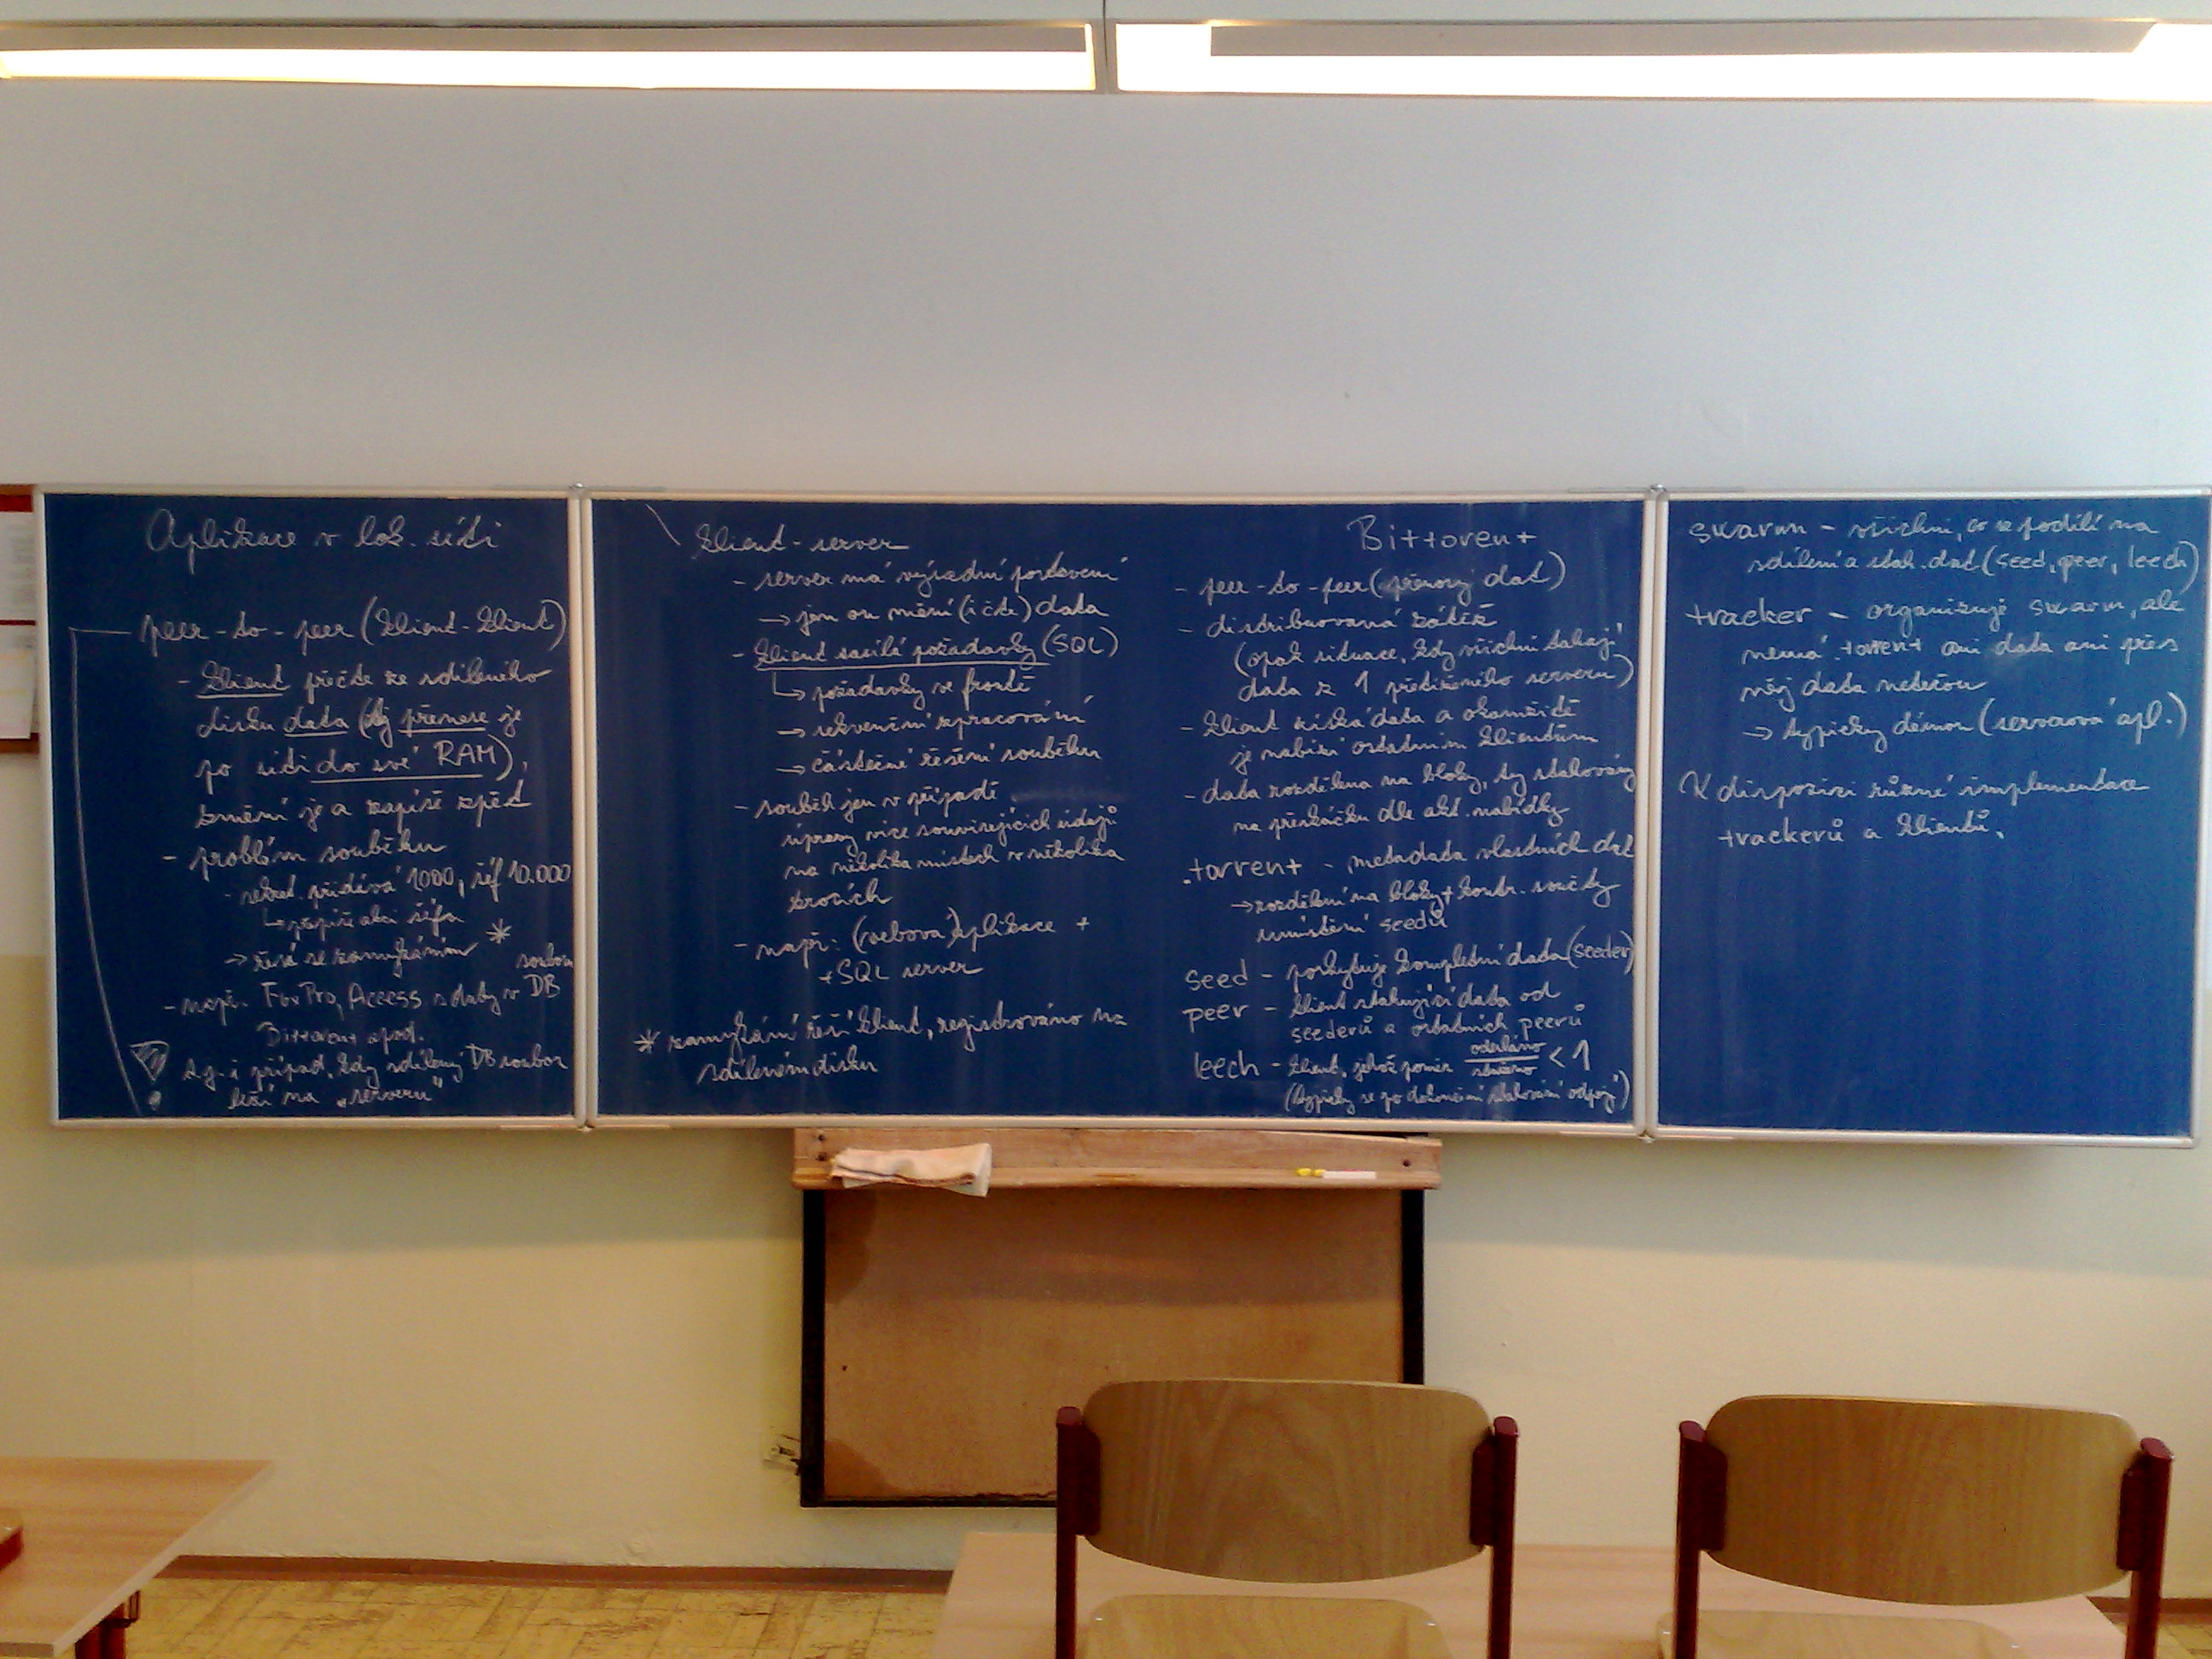 Aplikace v lok. síti
peer-to-peer (klient-klient)
- klient přečte ze sdíleného
disku data (tj přenese je
po síti do své RAM),
změní je a zapíše zpět
- problém souběhu
- sekret. přidává 1000, šéf 10.000
↳ přepíše akci šéfa
→ řeší se zamykáním *
- např. FoxPro, Access s daty v DB souboru
Bittorent apod.
! tj. i případ, kdy sdílený DB soubor
leží na „serveru"
klient-server
- server má výsadní postavení
→ jen on mění (i čte) data
- klient zasílá požadavky (SQL)
↳ požadavky ve frontě
→ sekvenční zpracování
→ částečné řešení souběhu
- souběh jen v případě
úpravy více souvisejících údajů
na několika místech v několika
krocích
- např: (webová) aplikace +
+ SQL server
* zamykání řeší klient, registrováno na
sdíleném disku
Bittorent
- peer-to-peer (přenosy dat)
- distribuovaná zátěž
(opak situace, kdy všichni tahají
data z 1 přetíženého serveru)
- klient získá data a okamžitě
je nabízí ostatním klientům
- data rozdělena na bloky, ty stahovány
na přeskáčku dle akt. nabídky
.torrent - metadata vlastních dat
→ rozdělení na bloky + kontr. součty
umístění seedů
seed - poskytuje kompletní data (seeder)
peer - klient stahující data od
seederů a ostatních peerů
leech - klient, jehož poměr odesláno/staženo < 1
(typicky se po dokončení stahování odpojí)
swarm - všichni, co se podílí na
sdílení a stah. dat (seed, peer, leech)
tracker - organizuje swarm, ale
nemá .torrent ani data ani přes
něj data netečou
→ typicky démon (serverová apl.)
K dispozici různé implementace
trackerů a klientů.